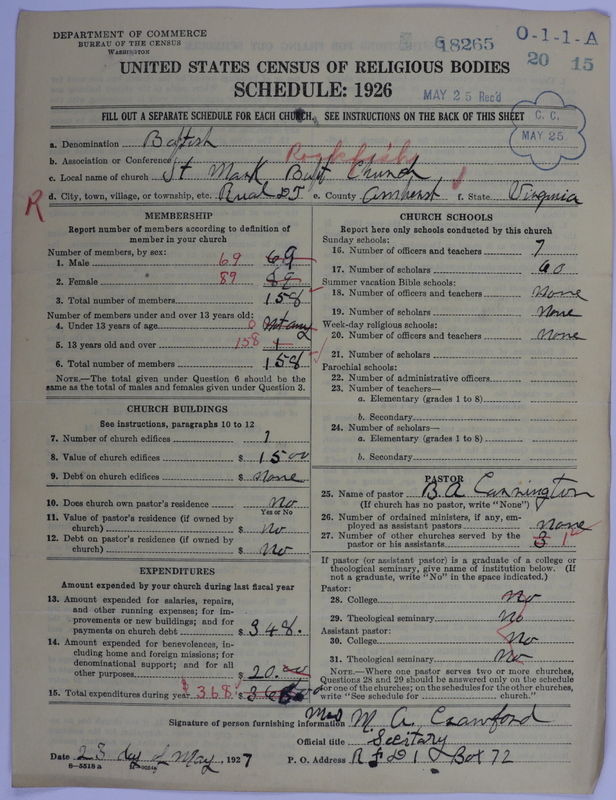 DEPARTMENT OF COMMERCE
BUREAU OF THE CENSUS
WASHINGTON
18265
O-1-1-A
20 15
UNITED STATES CENSUS OF RELIGIOUS BODIES
SCHEDULE: 1926
MAY 25 Rec'd
FILL OUT A SEPARATE SCHEDULE FOR EACH CHURCH. SEE INSTRUCTIONS ON THE BACK OF THIS SHEET
C. C.
MAY 25
a. Denomination Baptist
b. Association or Conference Rockfish
c. Local name of church St Mark Bapt Church
d. City, town, village, or township, etc. Rural e. County Amherst f. State Virginia
R
MEMBERSHIP
Report number of members according to definition of member in your church
Number of members, by sex:
1. Male 69 69
2. Female 89 89
3. Total number of members 158
Number of members under and over 13 years old:
4. Under 13 years of age 0 Not any
5. 13 years old and over 158 1
6. Total number of members 158
NOTE.—The total given under Question 6 should be the
same as the total of males and females given under Question 3.
CHURCH BUILDINGS
See instructions, paragraphs 10 to 12
7. Number of church edifices 1
8. Value of church edifices $ 1500
9. Debt on church edifices $ none
10. Does church own pastor's residence no
Yes or No
11. Value of pastor's residence (if owned by
church) $ No
12. Debt on pastor's residence (if owned by
church) $ No
EXPENDITURES
Amount expended by your church during last fiscal year
13. Amount expended for salaries, repairs,
and other running expenses; for im-
provements or new buildings; and for
payments on church debt $ 348.
14. Amount expended for benevolences, in-
cluding home and foreign missions; for
denominational support; and for all
other purposes $ 20.00
15. Total expenditures during year $ 368
CHURCH SCHOOLS
Report here only schools conducted by this church
Sunday schools:
16. Number of officers and teachers 7
17. Number of scholars 60
Summer vacation Bible schools:
18. Number of officers and teachers None
19. Number of scholars None
Week-day religious schools:
20. Number of officers and teachers None
21. Number of scholars
Parochial schools:
22. Number of administrative officers
23. Number of teachers—
a. Elementary (grades 1 to 8)
b. Secondary
24. Number of scholars—
a. Elementary (grades 1 to 8)
b. Secondary
PASTOR
25. Name of pastor B. A. Cannington
(If church has no pastor, write "None")
26. Number of ordained ministers, if any, em-
ployed as assistant pastors none
27. Number of other churches served by the
pastor or his assistants 3 1
If pastor (or assistant pastor) is a graduate of a college or
theological seminary, give name of institution below. (If
not a graduate, write "No" in the space indicated.)
Pastor:
28. College No
29. Theological seminary No
Assistant pastor:
30. College No
31. Theological seminary No
NOTE.—Where one pastor serves two or more churches,
Questions 28 and 29 should be answered only on the schedule
for one of the churches; on the schedules for the other churches,
write "See schedule for church."
Signature of person furnishing information Mrs M. A. Crawford
Official title Secitary
Date 23 dy of May, 1927 P. O. Address R F D 1 Box 72
8—5518 a